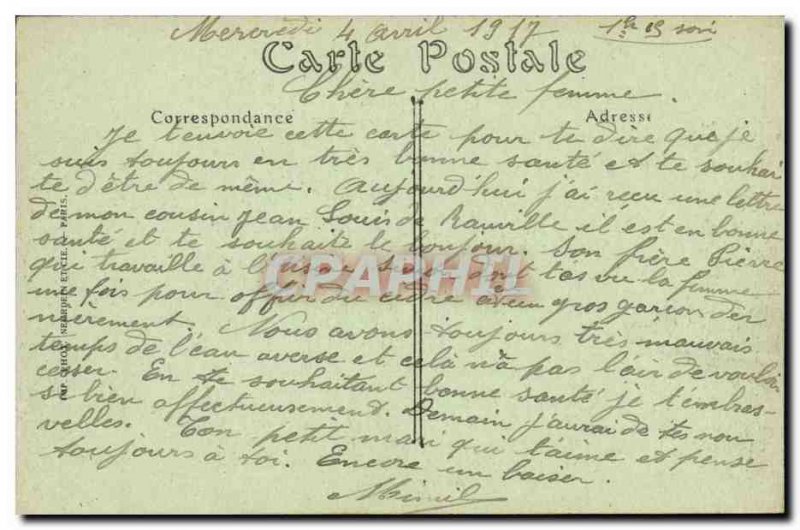 Mercredi 4 avril 1917 1h 15 soir
Carte Postale
Chère petite femme.
Correspondance
Adresse
Je t'envoie cette carte pour te dire que je
suis toujours en très bonne santé et te souhai
te d'être de même. Aujourd'hui j'ai reçu une lettre
de mon cousin Jean Louis de Rauville il est en bonne
santé et te souhaite le bonjour. Son frère Pierre
qui travaille à l'usine dont tas vu la femme
une fois pour offrir du cidre à eu un gros garçon der
nièrement. Nous avons toujours très mauvais
temps de l'eau averse et celà n'a pas l'air de vouloir
cesser. En te souhaitant bonne santé je t'embres-
se bien affectueusement. Demain j'aurai de tes nou
velles. Ton petit mari qui t'aime et pense
toujours à toi. Encore un baiser.
Mimil
CPAPHIL
IMP. NEURDEIN ET CIE. - PARIS.